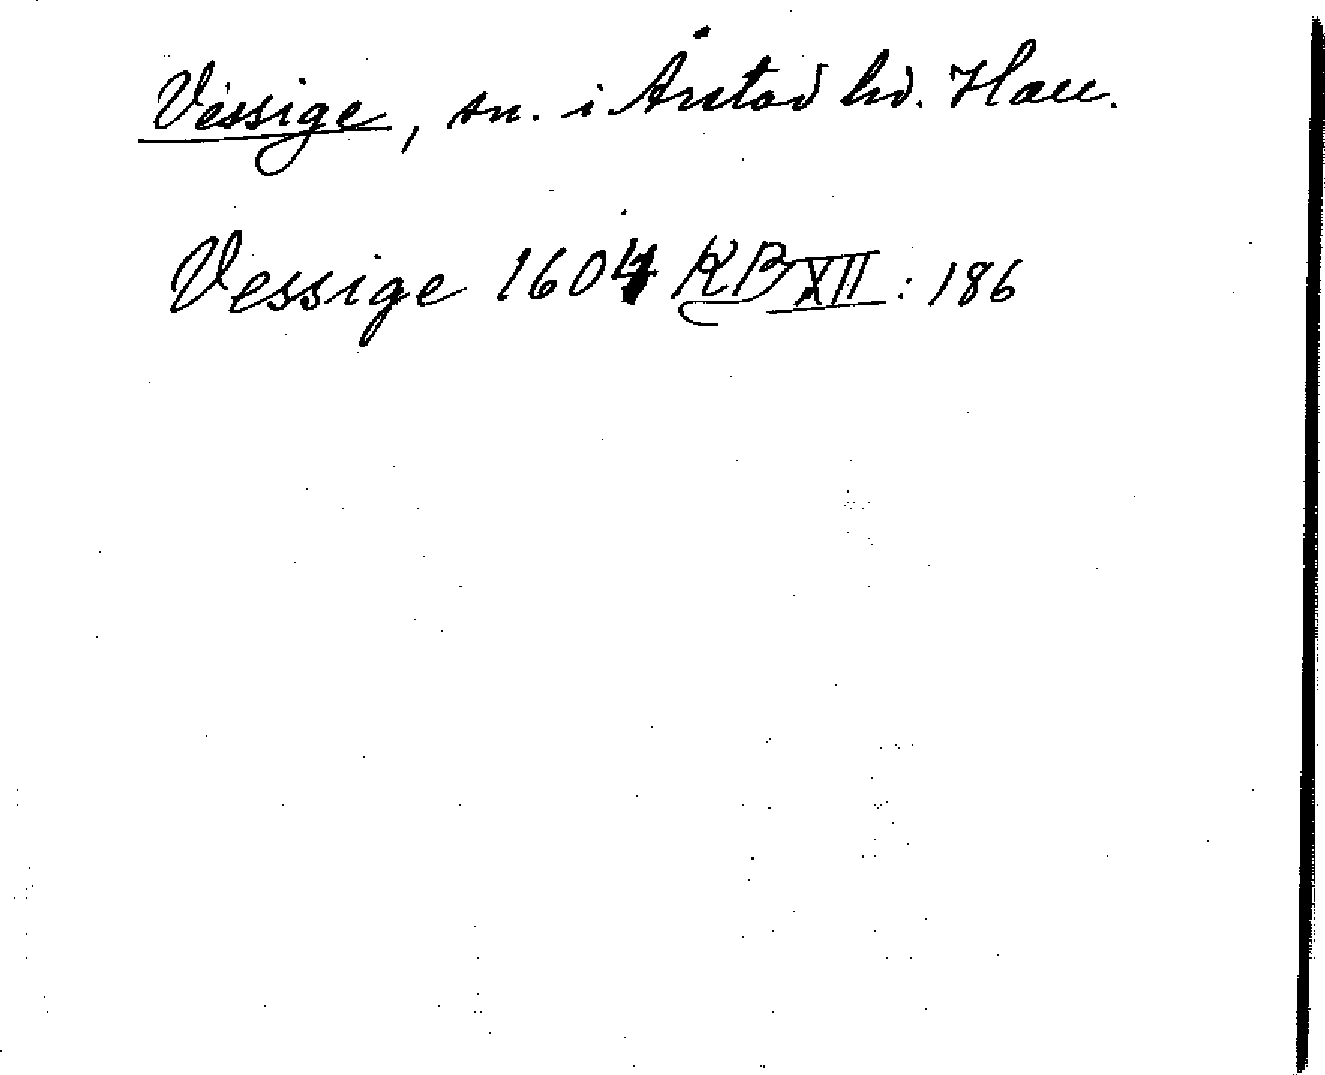 Vessige, sn. i Årstad hd. Hall.
Vessige 1604 KB XII : 186